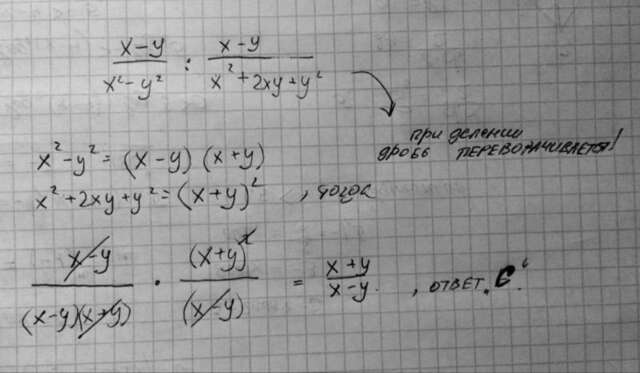 x-y / x²-y² : x-y / x²+2xy+y²
при делении
дробь переворачивается!
x²-y² = (x-y)(x+y)
x²+2xy+y² = (x+y)², тогда
x-y / (x-y)(x+y) · (x+y)² / (x-y) = x+y / x-y, ответ. C.